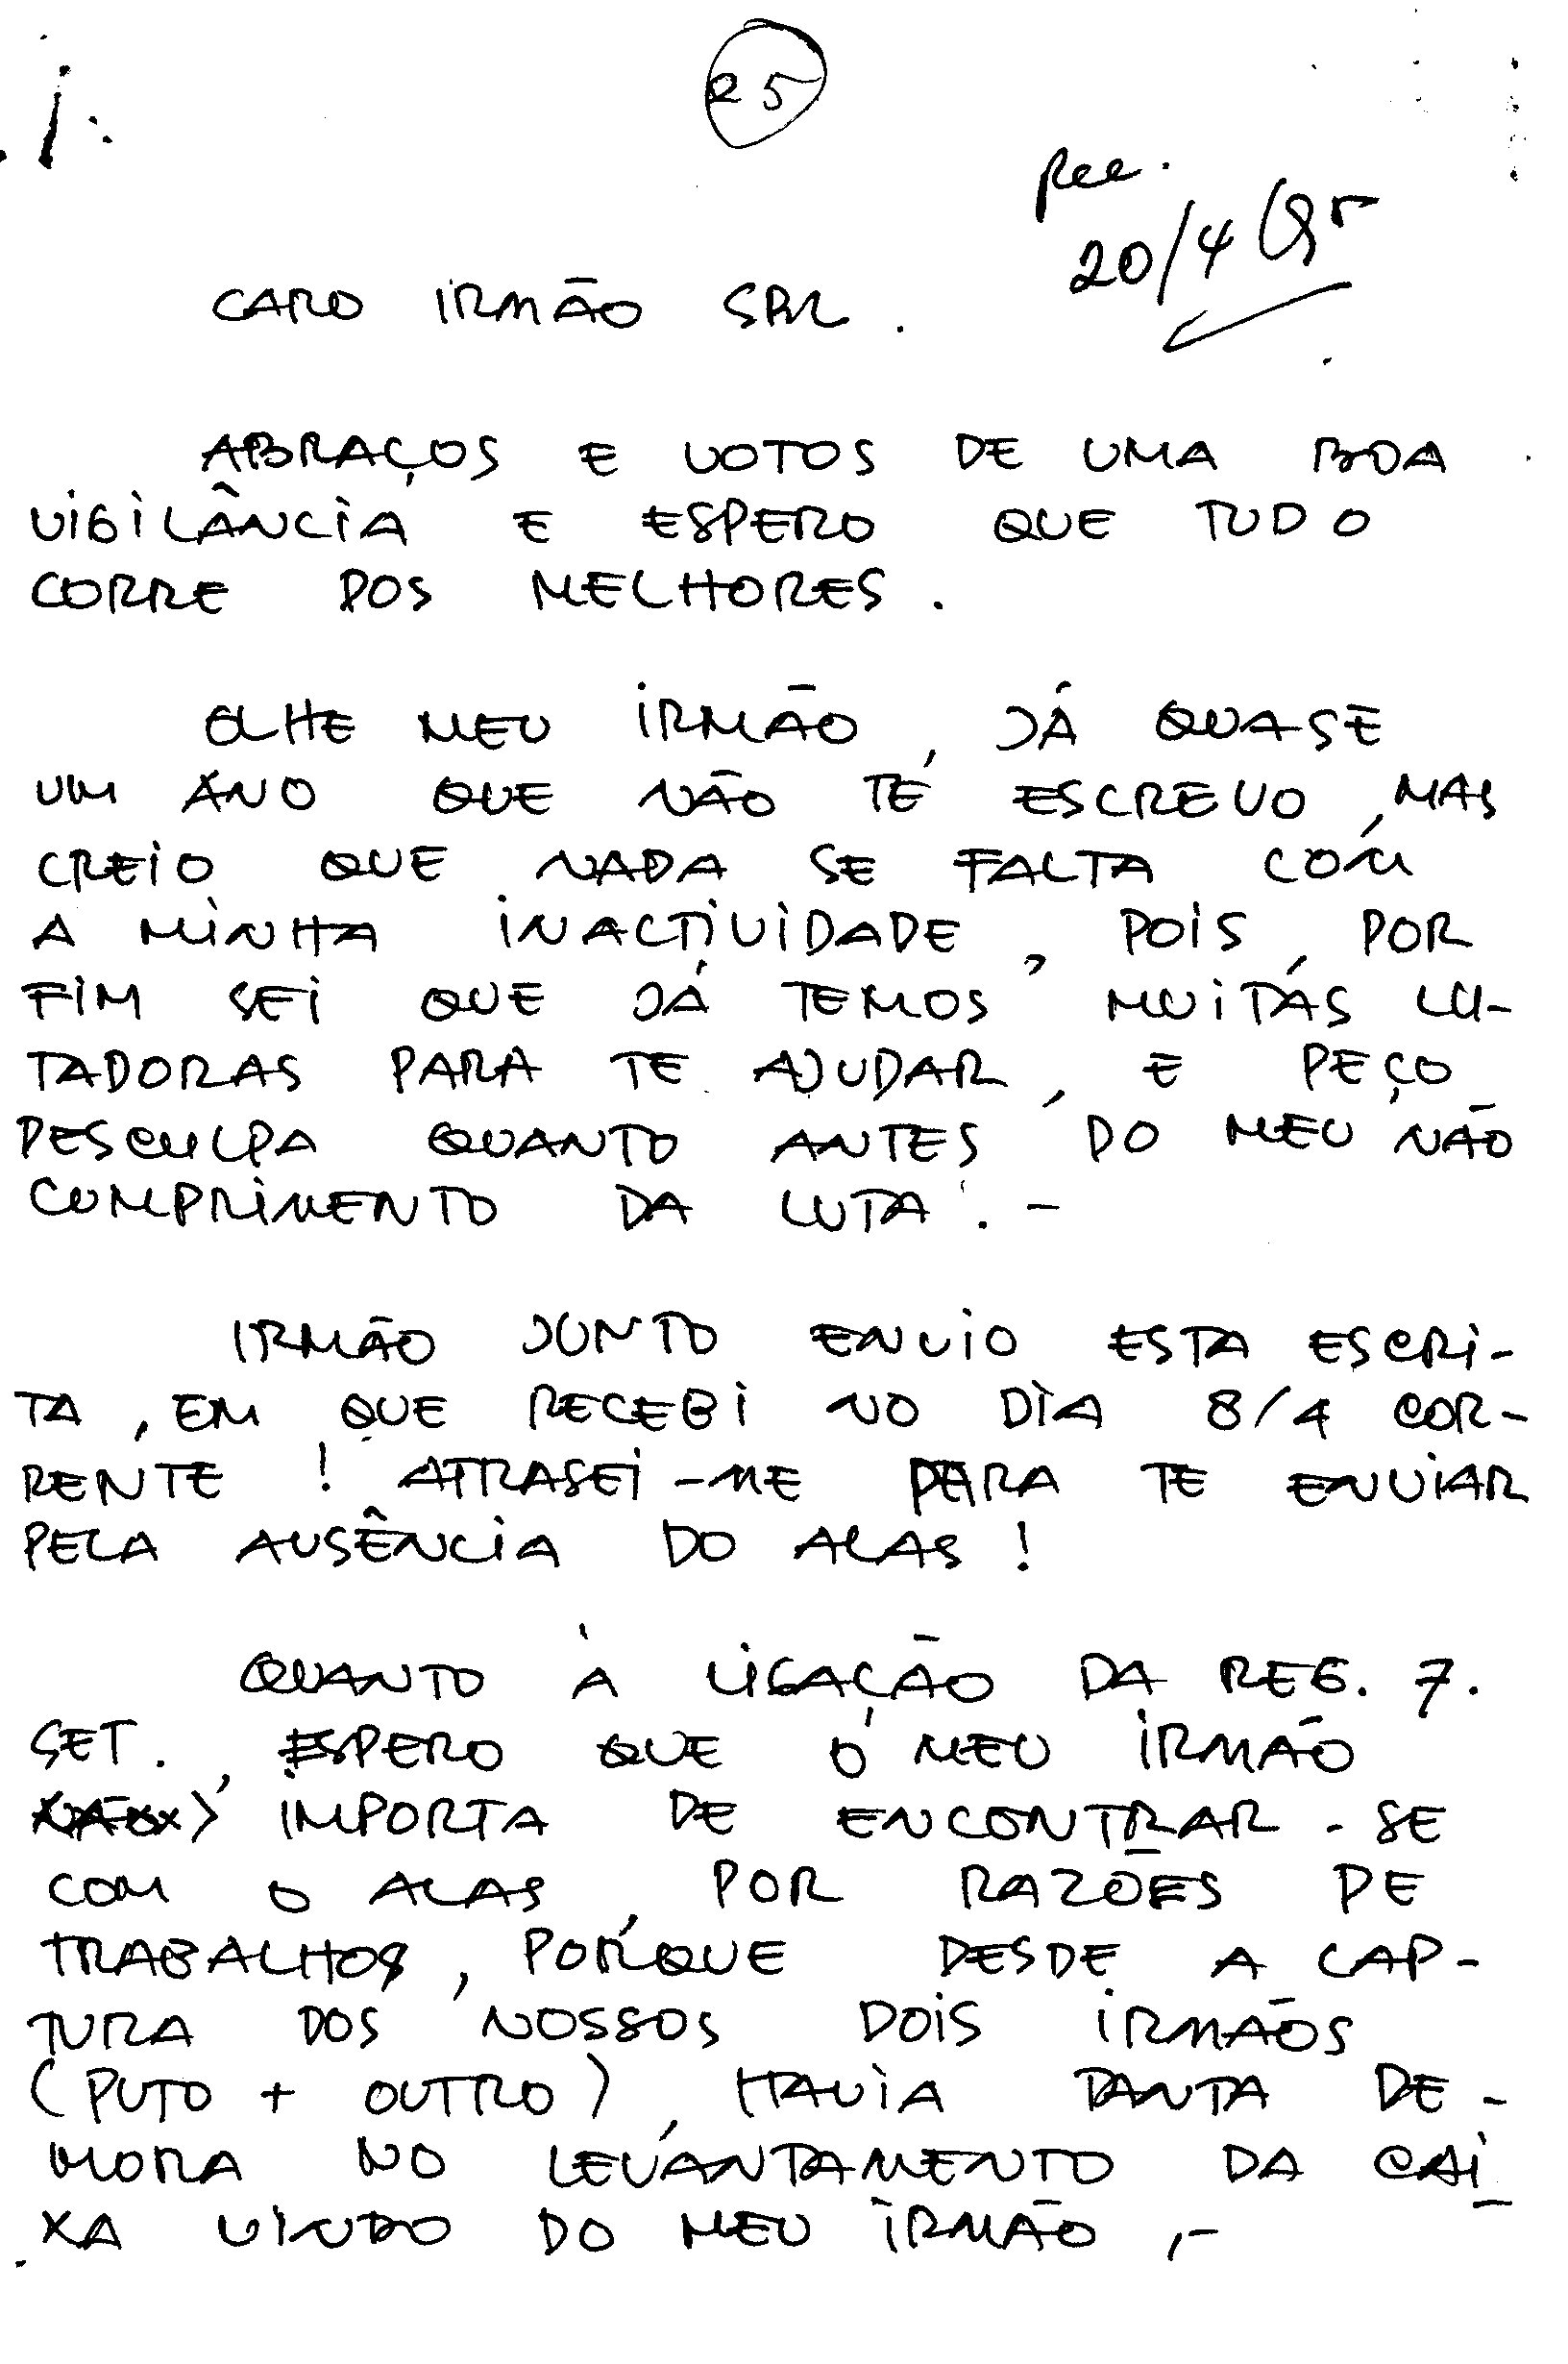 25
Rec.
20/4/95
CARO IRMÃO SRL.
ABRAÇOS E VOTOS DE UMA BOA
VIGILÂNCIA E ESPERO QUE TUDO
CORRE DOS MELHORES.
OLHE MEU IRMÃO, JÁ QUASE
UM ANO QUE NÃO TE ESCREVO, MAS
CREIO QUE NADA SE FALTA COM
A MINHA INACTIVIDADE, POIS, POR
FIM SEI QUE JÁ TEMOS MUITAS LU-
TADORAS PARA TE AJUDAR, E PEÇO
DESCULPA QUANTO ANTES DO MEU NÃO
COMPRIMENTO DA LUTA. -
IRMÃO JUNTO ENVIO ESTA ESCRI-
TA, EM QUE RECEBI NO DIA 8/4 COR-
RENTE! ATRASEI-ME PARA TE ENVIAR
PELA AUSÊNCIA DO ALAS!
QUANTO À LIGAÇÃO DA REG. 7.
SET., ESPERO QUE O MEU IRMÃO
IMPORTA DE ENCONTRAR-SE
COM O ALAS, POR RAZÕES DE
TRABALHOS, PORQUE DESDE A CAP-
TURA DOS NOSSOS DOIS IRMÃOS
(PUTO + OUTRO), HAVIA TANTA DE-
MORA NO LEVANTAMENTO DA CAI
XA VINDO DO MEU IRMÃO,-